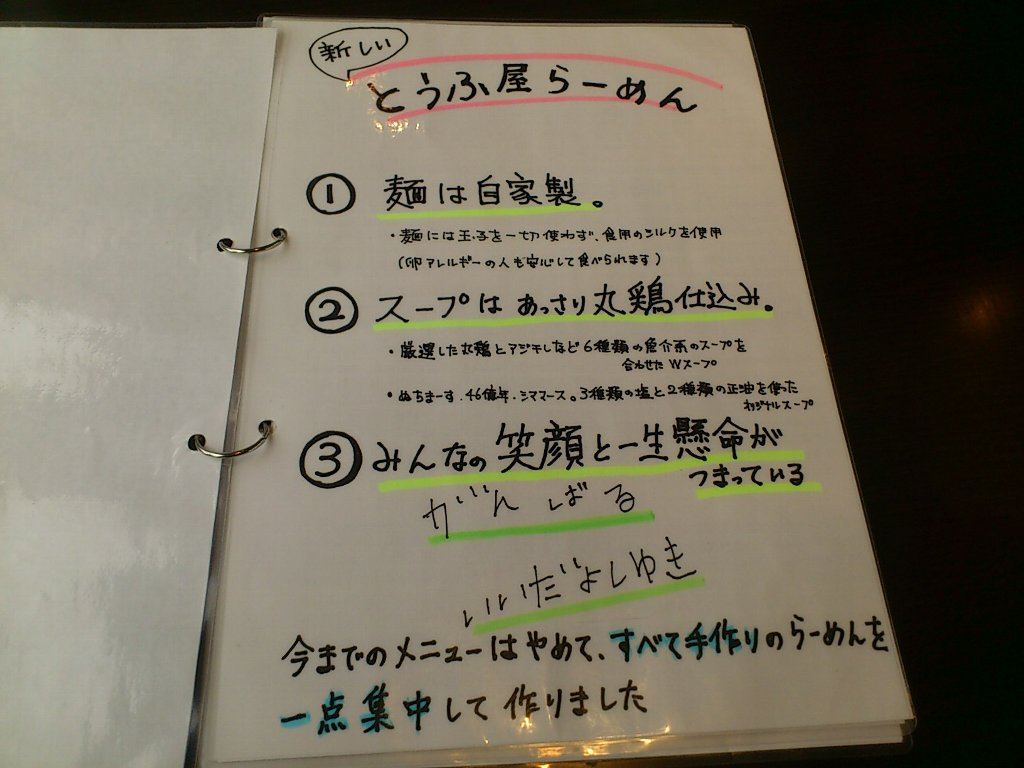 新しい
とうふ屋らーめん
① 麺は自家製。
・麺には玉子を一切使わず、食用のシルクを使用
(卵アレルギーの人も安心して食べられます)
② スープはあっさり丸鶏仕込み。
・厳選した丸鶏とアジ干しなど6種類の魚介系のスープを
合わせたWスープ
・ぬちまーす・46億年・シママース。3種類の塩と2種類の正油を使った
オリジナルスープ
③ みんなの笑顔と一生懸命が
つまっている
がんばる
いいだよしゆき
今までのメニューはやめて、すべて手作りのらーめんを
一点集中して作りました